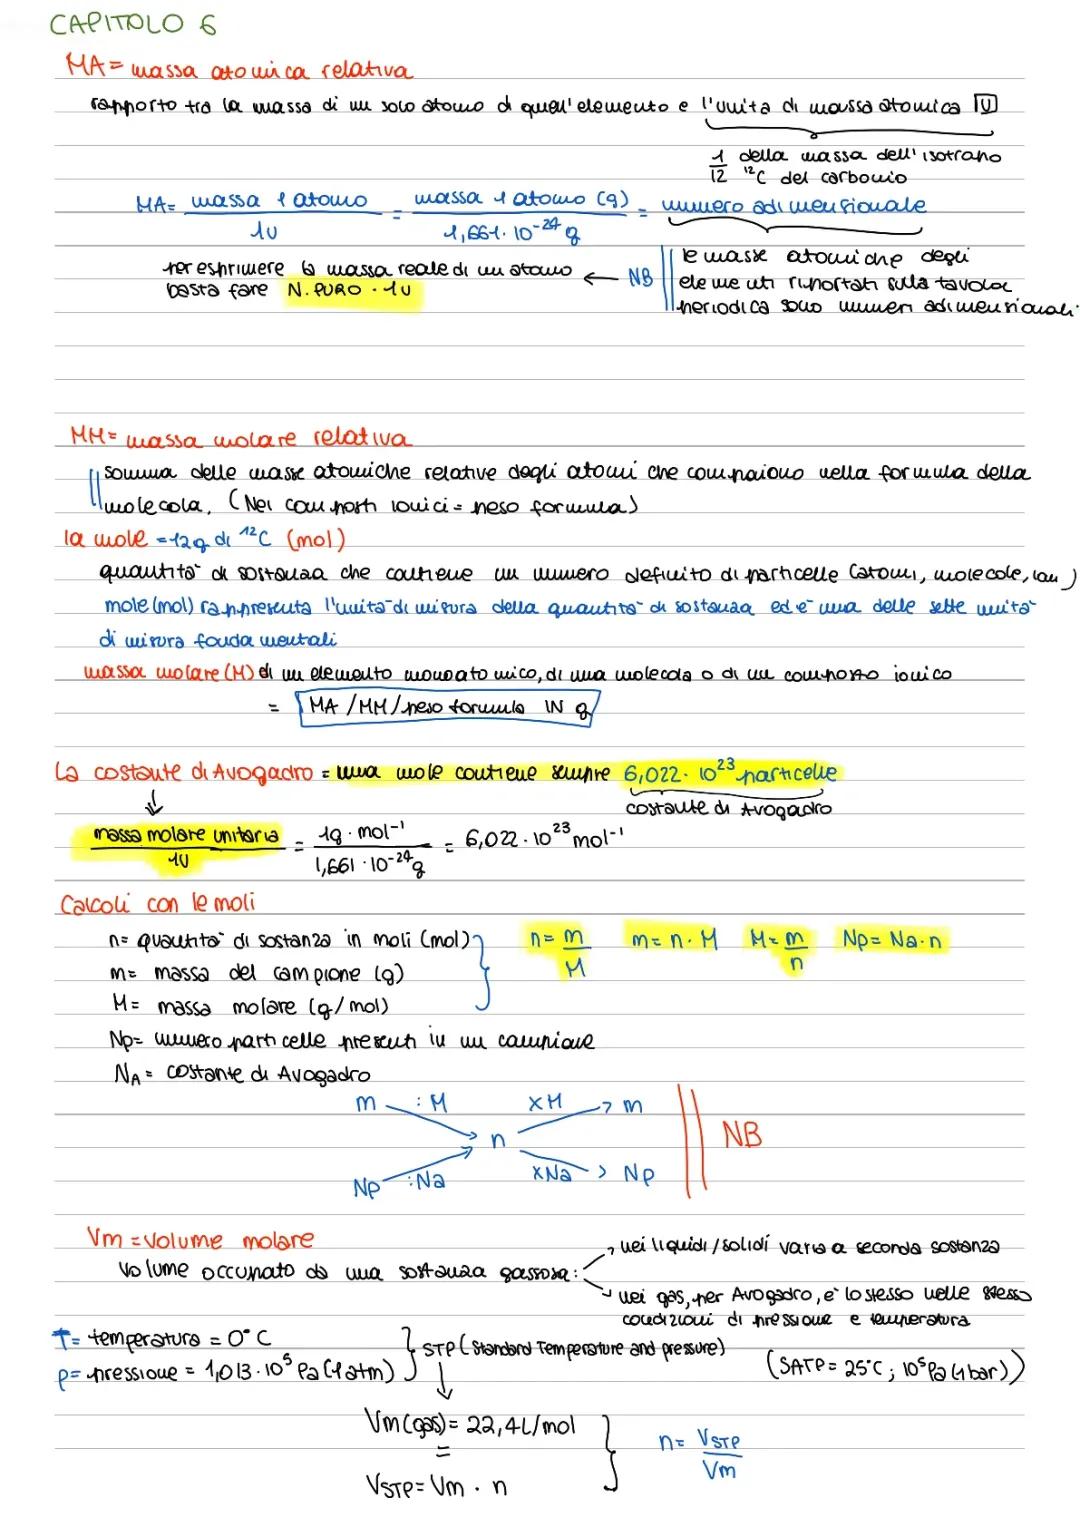 CAPITOLO 6
MA= massa atomica relativa
rapporto tra la massa di un solo atomo di quell'elemento e l'unità di massa atomica U
1/12 della massa dell'isotopo
¹²C del carbonio
MA= massa 1 atomo / 1U = massa 1 atomo (g) / 1,661·10⁻²⁴ g = numero adimensionale
per esprimere la massa reale di un atomo ← NB
basta fare N.PURO · 1U
le masse atomiche degli
elementi riportati sulla tavola
periodica sono numeri adimensionali.
MM= massa molare relativa
somma delle masse atomiche relative degli atomi che compaiono nella formula della
molecola. (Nei composti ionici = peso formula)
la mole =12g di ¹²C (mol)
quantità di sostanza che contiene un numero definito di particelle (atomi, molecole, ioni)
mole (mol) rappresenta l'unità di misura della quantità di sostanza ed è una delle sette unità
di misura fondamentali
massa molare (M) di un elemento monoatomico, di una molecola o di un composto ionico
= MA /MM/peso formula IN g
La costante di Avogadro = una mole contiene sempre 6,022· 10²³ particelle
costante di Avogadro
massa molare unitaria / 1U = 1g · mol⁻¹ / 1,661 ·10⁻²⁴g = 6,022 · 10²³ mol⁻¹
Calcoli con le moli
n= quantità di sostanza in moli (mol) n= m/M m= n · M M= m/n Np= Na·n
m= massa del campione (g)
M= massa molare (g/mol)
Np= numero particelle presenti in un campione
NA= costante di Avogadro
m :M xM → m
n NB
Np :Na xNa → Np
Vm =volume molare
volume occupato da una sostanza gassosa:
nei liquidi/solidi varia a seconda sostanza
nei gas, per Avogadro, è lo stesso nelle stesse
condizioni di pressione e temperatura
T= temperatura = 0°C
p= pressione = 1,013·10⁵ Pa (1atm)
STP (Standard Temperature and pressure)
(SATP= 25°C; 10⁵Pa (1bar))
Vm(gas)= 22,4L/mol
=
VSTP= Vm · n
n= VSTP/Vm